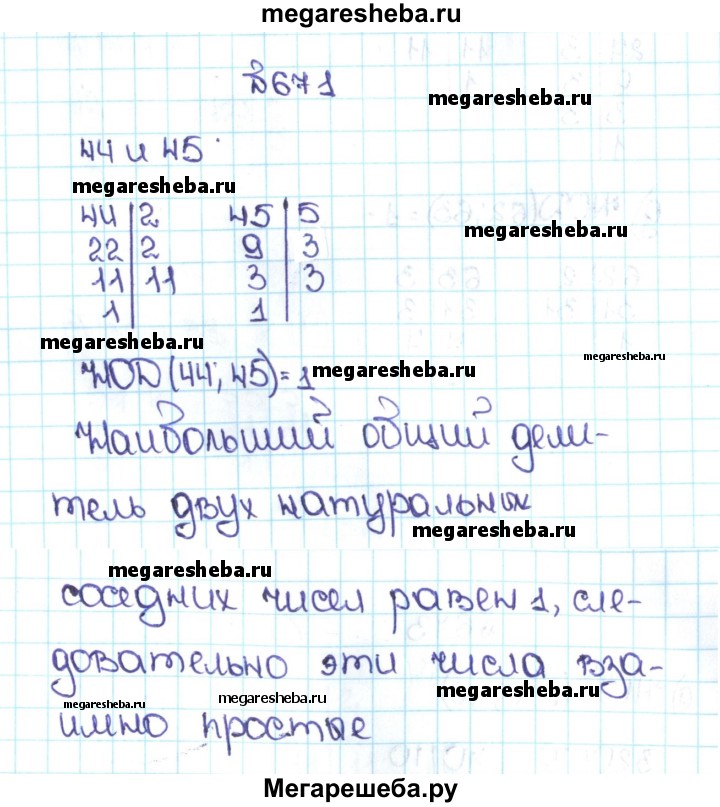 megaresheba.ru
№671
megaresheba.ru
44 и 45
megaresheba.ru
44|2 45|5
megaresheba.ru
22|2 9|3
11|11 3|3
1| 1|
megaresheba.ru
megaresheba.ru
НОД(44; 45)=1
megaresheba.ru
Наибольший общий дели-
тель двух натуральных
megaresheba.ru
megaresheba.ru
соседних чисел равен 1, сле-
довательно эти числа вза-
megaresheba.ru
megaresheba.ru
megaresheba.ru
имно простые
Мегарешеба.ру